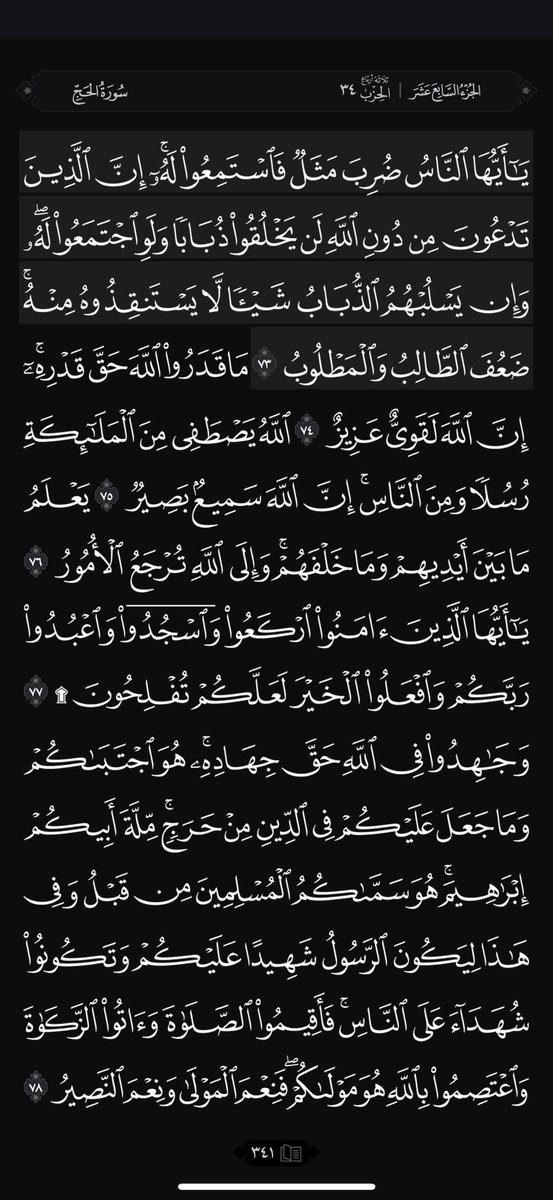 الجزء السابع عشر | ثلاثة أرباع الحزب ٣٤
سورة الحج
يَـٰٓأَيُّهَا ٱلنَّاسُ ضُرِبَ مَثَلٌ فَٱسْتَمِعُوا۟ لَهُۥٓ ۚ إِنَّ ٱلَّذِينَ
تَدْعُونَ مِن دُونِ ٱللَّهِ لَن يَخْلُقُوا۟ ذُبَابًا وَلَوِ ٱجْتَمَعُوا۟ لَهُۥ ۖ
وَإِن يَسْلُبْهُمُ ٱلذُّبَابُ شَيْـًٔا لَّا يَسْتَنقِذُوهُ مِنْهُ ۚ
ضَعُفَ ٱلطَّالِبُ وَٱلْمَطْلُوبُ ٧٣ مَا قَدَرُوا۟ ٱللَّهَ حَقَّ قَدْرِهِۦٓ ۚ
إِنَّ ٱللَّهَ لَقَوِىٌّ عَزِيزٌ ٧٤ ٱللَّهُ يَصْطَفِى مِنَ ٱلْمَلَـٰٓئِكَةِ
رُسُلًا وَمِنَ ٱلنَّاسِ ۚ إِنَّ ٱللَّهَ سَمِيعٌۢ بَصِيرٌ ٧٥ يَعْلَمُ
مَا بَيْنَ أَيْدِيهِمْ وَمَا خَلْفَهُمْ ۗ وَإِلَى ٱللَّهِ تُرْجَعُ ٱلْأُمُورُ ٧٦
يَـٰٓأَيُّهَا ٱلَّذِينَ ءَامَنُوا۟ ٱرْكَعُوا۟ وَٱسْجُدُوا۟ وَٱعْبُدُوا۟
رَبَّكُمْ وَٱفْعَلُوا۟ ٱلْخَيْرَ لَعَلَّكُمْ تُفْلِحُونَ ۩ ٧٧
وَجَـٰهِدُوا۟ فِى ٱللَّهِ حَقَّ جِهَادِهِۦ ۚ هُوَ ٱجْتَبَىٰكُمْ
وَمَا جَعَلَ عَلَيْكُمْ فِى ٱلدِّينِ مِنْ حَرَجٍ ۚ مِّلَّةَ أَبِيكُمْ
إِبْرَٰهِيمَ ۚ هُوَ سَمَّىٰكُمُ ٱلْمُسْلِمِينَ مِن قَبْلُ وَفِى
هَـٰذَا لِيَكُونَ ٱلرَّسُولُ شَهِيدًا عَلَيْكُمْ وَتَكُونُوا۟
شُهَدَآءَ عَلَى ٱلنَّاسِ ۚ فَأَقِيمُوا۟ ٱلصَّلَوٰةَ وَءَاتُوا۟ ٱلزَّكَوٰةَ
وَٱعْتَصِمُوا۟ بِٱللَّهِ هُوَ مَوْلَىٰكُمْ ۖ فَنِعْمَ ٱلْمَوْلَىٰ وَنِعْمَ ٱلنَّصِيرُ ٧٨
٣٤١